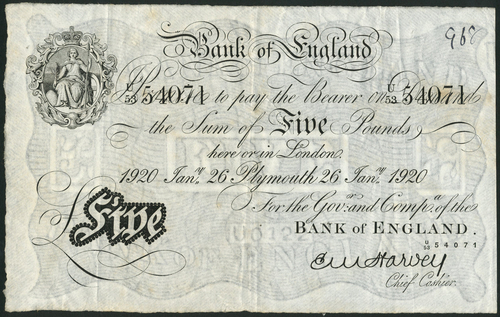 Bank of England
968
U/53 54071 to pay the Bearer on U/53 54071
the Sum of Five Pounds
here or in London.
1920 Jany. 26 Plymouth 26 Jany. 1920
For the Govr. and Compa. of the
BANK OF ENGLAND.
U/53 54071
£Five
E M Harvey
Chief Cashier.